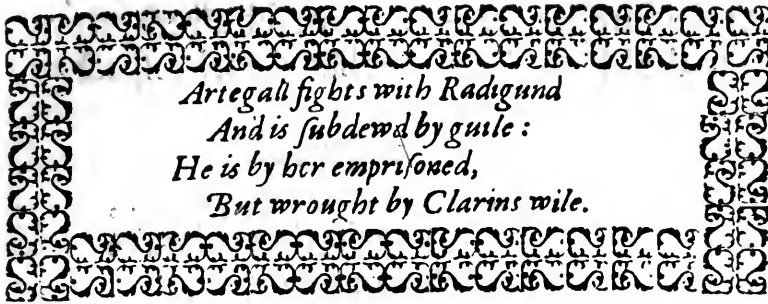 Artegall fights with Radigund
And is ſubdewd by guile :
He is by her empriſoned,
But wrought by Clarins wile.